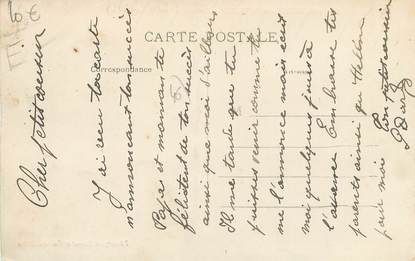 10 €
CARTE POSTALE
Correspondance
Cher petit cousin
J'ai reçu ta carte
m'annonçant ton succès
Papa et maman te
félicitent de ton succès
ainsi que moi d'ailleurs
Il me tarde que tu
puisses venir comme tu
me l'annonce mais écrit
moi quelques jours à
l'avance Embrasse tes
parents ainsi qu'Hélène
pour moi
Ton petit cousin